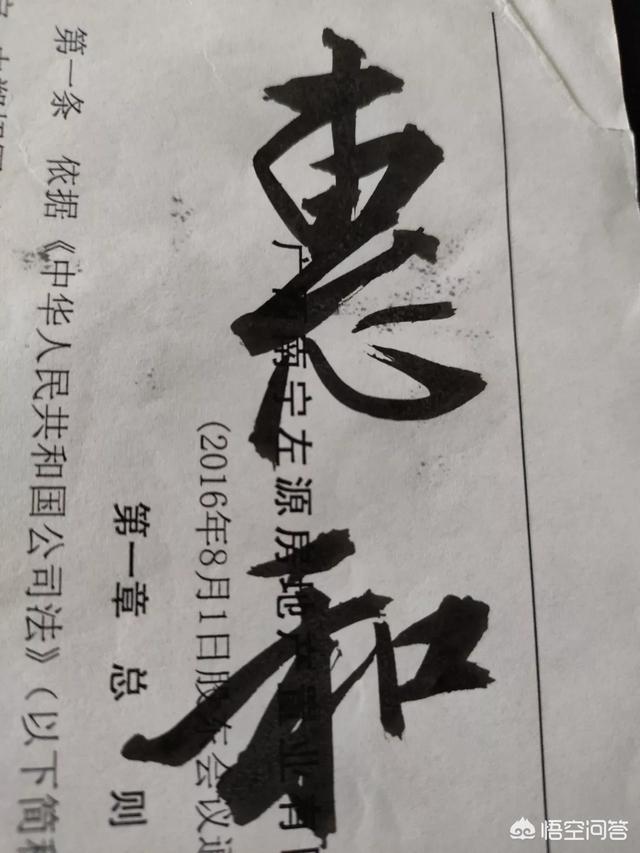 惠
和
广 南宁左源房地产置业有
(2016年8月1日股东会议通
第一章 总 则
第一条 依据《中华人民共和国公司法》(以下简称
悟空问答